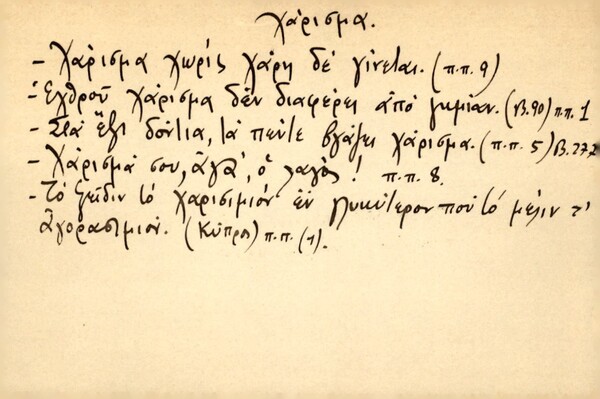 Χάρισμα.
- Χάρισμα χωρίς χάρη δέ γίνεται. (π.π. 9)
- Ἐχθροῦ χάρισμα δέν διαφέρει ἀπό ζημίαν. (Β.90) π.π. 1
- Στά ἕξι δόντια, τά πέντε βγάζει χάρισμα. (π.π. 5) Β.272
- Χάρισμά σου, ἀγά, ὁ λαγός! π.π. 8.
- Τό ξίδιν τό χαρισιμιόν ἐν γλυκύτερον πού τό μέλιν τ'
ἀγοραστμιόν. (Κύπρος) π.π. (1).